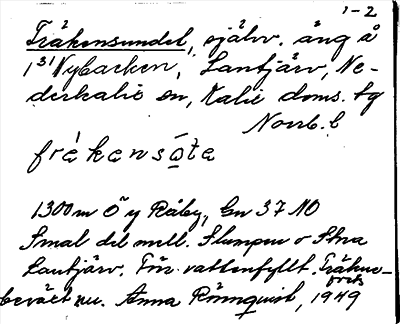 1-2
Fräkensundet, självv. äng å
1³¹ Nybacken, Lantjärv, Ne-
derkalix sn, Kalix doms. tg
Norrb. l
frä̀kensó̱ta
1300 m Ö y Råby, Gn 37 NO
Smal del mell. Slumpen o Stra
Lantjärv. Förr vattenfyllt. Fräkne-
förek
beväxt nu. Anna Rönnquist, 1949